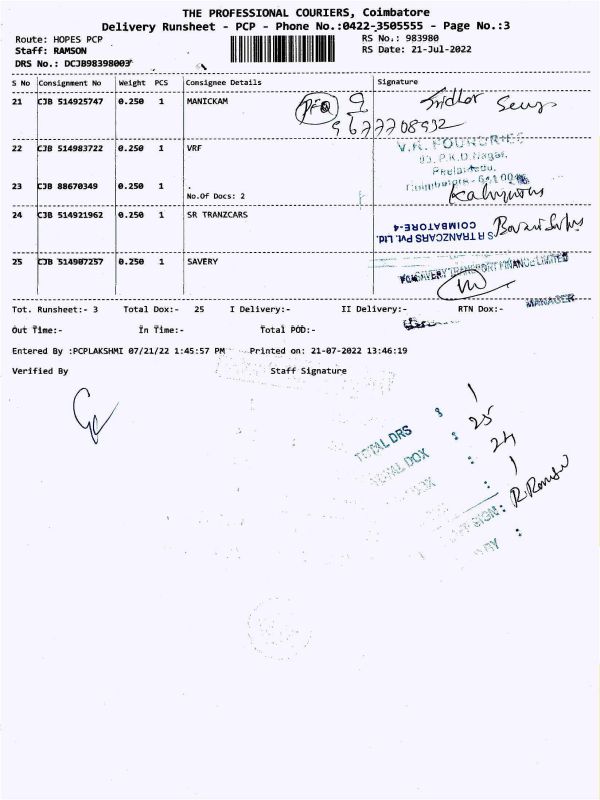 THE PROFESSIONAL COURIERS, Coimbatore
Delivery Runsheet - PCP - Phone No.:0422-3505555 - Page No.:3
Route: HOPES PCP RS No.: 983980
Staff: RAMSON RS Date: 21-Jul-2022
DRS No.: DCJB98398003
S No Consignment No Weight PCS Consignee Details Signature
21 CJB 514925747 0.250 1 MANICKAM
22 CJB 514983722 0.250 1 VRF
V.R. FOUNDRIES
23 CJB 88670349 0.250 1 .
No.Of Docs: 2
24 CJB 514921962 0.250 1 SR TRANZCARS
S R TRANZCARS Pvt. Ltd.
COIMBATORE-4
25 CJB 514907257 0.250 1 SAVERY
For SAVERY TRANSPORT FINANCE LIMITED
MANAGER
Tot. Runsheet:- 3 Total Dox:- 25 I Delivery:- II Delivery:- RTN Dox:-
Out Time:- In Time:- Total POD:-
Entered By :PCPLAKSHMI 07/21/22 1:45:57 PM Printed on: 21-07-2022 13:46:19
Verified By Staff Signature
TOTAL DRS : 1
TOTAL DOX : 25
: 24
: 1
SIGN : R. Ramson